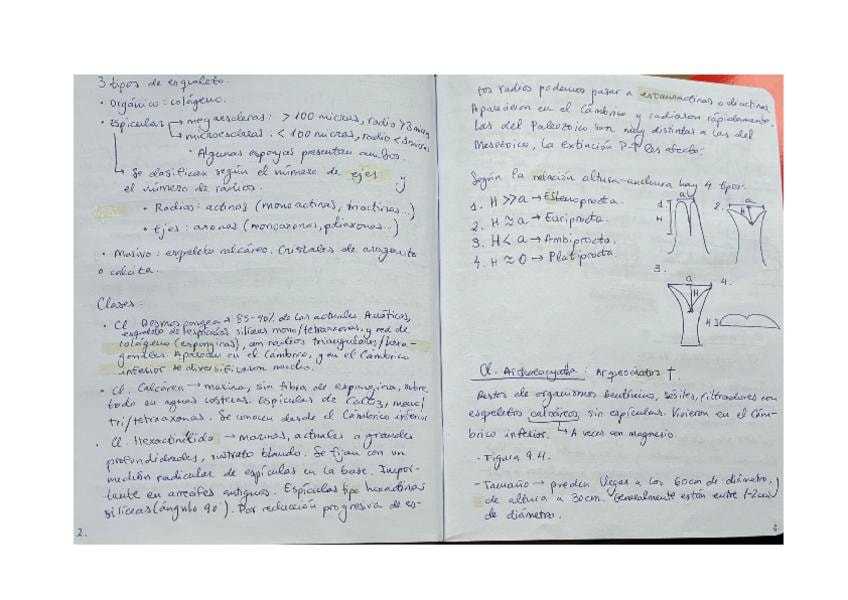 3 tipos de esqueleto.
• Orgánico: colágeno.
• Espicular → megaescleras: > 100 micras, radio > 3 micras
→ microescleras: < 100 micras, radio < 3 micras
• Algunas esponjas presentan ambos.
→ Se clasifican según el número de ejes y
el número de radios.
• Radios: actinas (monoactinas, triactinas...)
• Ejes: axonas (monoaxonas, poliaxonas...)
• Masivo: esqueleto calcáreo. Cristales de aragonito
o calcita.
Clases:
• Cl. Desmospongea → 85-90% de las actuales. Acuáticas,
esqueleto de espículas silíceas mono/tetraaxonas, y red de
colágeno (esponginas), con radios triangulares/
Aparecen en el Cámbrico, y en el Cámbrico
inferior se diversificaron mucho.
• Cl. Calcárea → marina, sin fibra de espongina, sobre
todo en aguas costeras. Espículas de CaCO3, mono/
tri/tetraaxonas. Se conocen desde el Cámbrico inferior
• Cl. Hexactinélida → marinas, actuales a grandes
profundidades, sustrato blando. Se fijan con un
mechón radicular de espículas en la base. Impor-
tante en arrecifes antiguos. Espículas tipo hexactinas
silíceas (ángulo 90°). Por reducción progresiva de es-
2.
tos radios podemos pasar a estauractinas o diactinas
Aparecieron en el Cámbrico y radiaron rápidamente.
Las del Paleozoico son muy distintas a las del
Mesozoico, la extinción P-T les afectó.
Según la relación altura-anchura hay 4 tipos:
1. H >> a → Estenoprocta.
2. H ≈ a → Euriprocta.
3. H < a → Ambiprocta.
4. H ≈ 0 → Platiprocta.
1. a H
2. a H
3. a H
4. H
Cl. Archaeocyatha: Arqueociatos †
Restos de organismos bentónicos, sésiles, filtradores con
esqueletos calcáreos, sin espículas. Vivieron en el Cám-
brico inferior. → A veces con magnesio.
- Figura 9.4.
- Tamaño → pueden llegar a los 60cm de diámetro, y
de altura a 30cm. Generalmente están entre 1-2cm
de diámetro.
3.